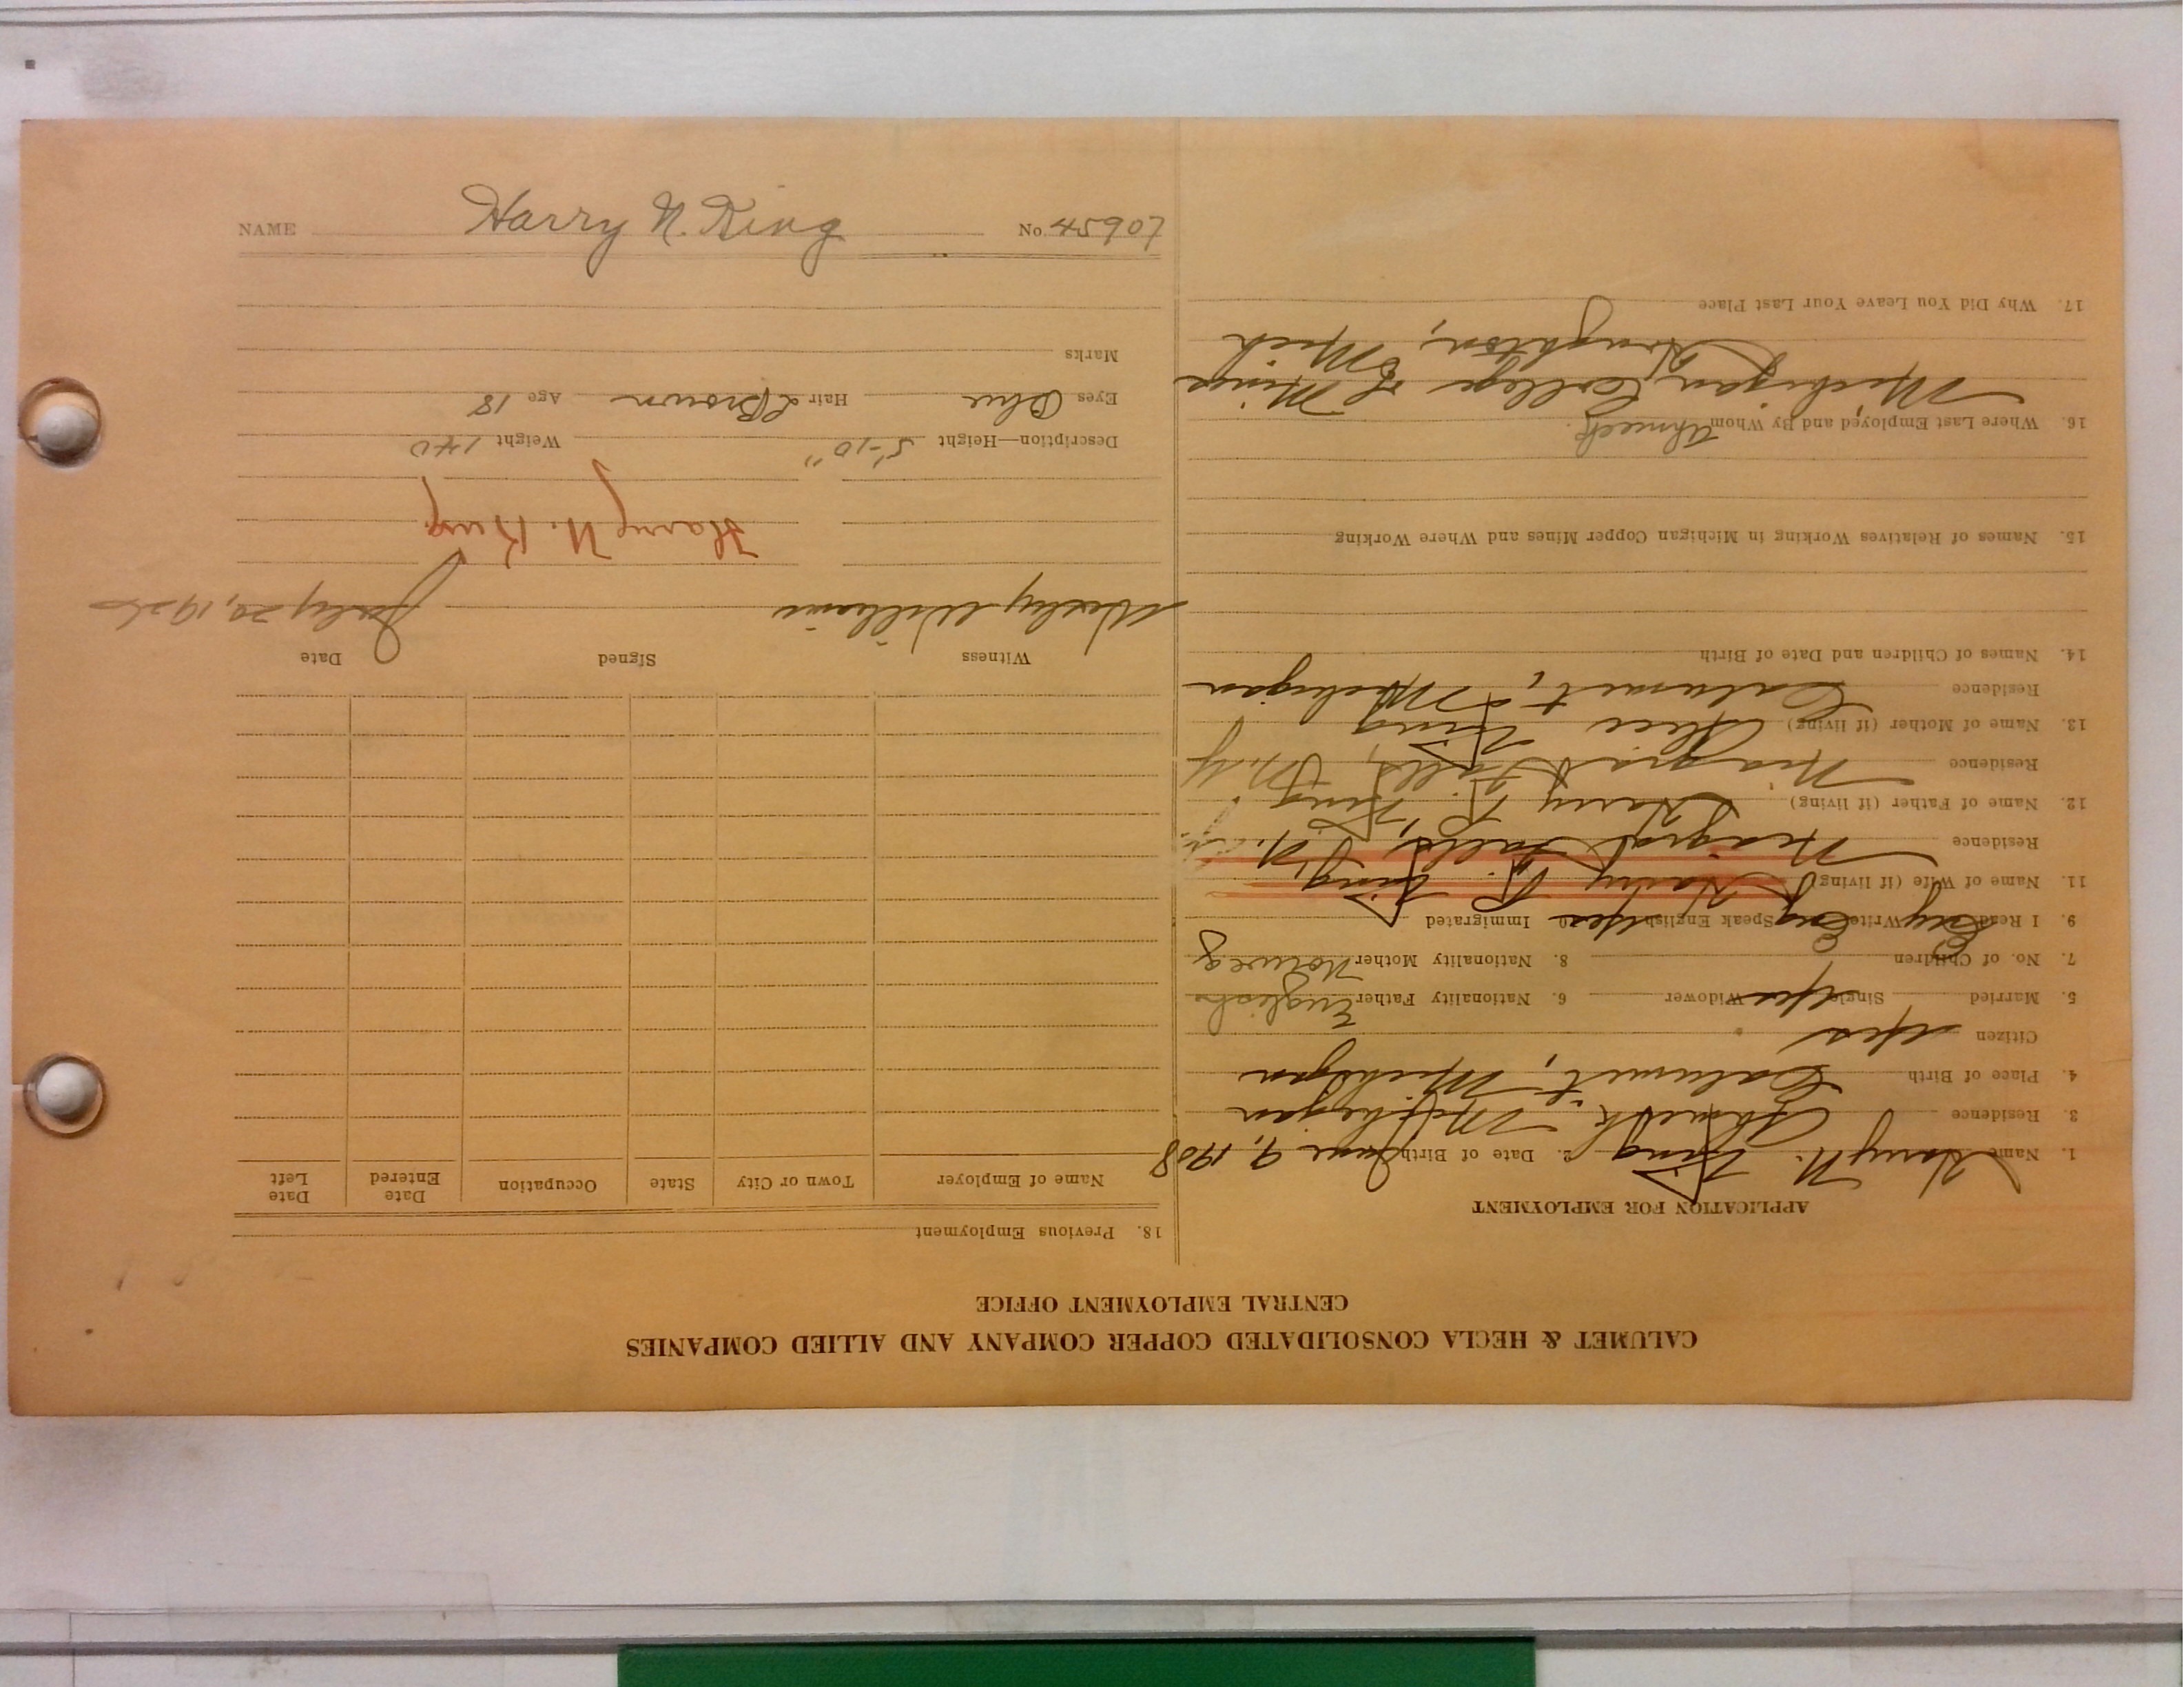 CALUMET & HECLA CONSOLIDATED COPPER COMPANY AND ALLIED COMPANIES
CENTRAL EMPLOYMENT OFFICE
APPLICATION FOR EMPLOYMENT
1. Name Harry N. King 2. Date of Birth June 9, 1908
3. Residence Ahmeek, Michigan
4. Place of Birth Calumet, Michigan
Citizen Yes
5. Married Single Yes Widower 6. Nationality Father English
7. No. of Children 8. Nationality Mother Norweg
9. I Read Eng Write Eng Speak English Yes 10. Immigrated
11. Name of Wife (if living) Harry R. King
Residence Niagra Falls, N.Y.
12. Name of Father (if living) Harry R. King
Residence Niagra Falls, N.Y.
13. Name of Mother (if living) Alice King
Residence Calumet, Michigan
14. Names of Children and Date of Birth
15. Names of Relatives Working in Michigan Copper Mines and Where Working
16. Where Last Employed and By Whom Ahmeek.
Michigan College of Mines
Houghton, Mich
17. Why Did You Leave Your Last Place
18. Previous Employment
Name of Employer Town or City State Occupation Date Entered Date Left
Witness Signed Date
Williams July 20, 1926
Harry N. King
Description—Height 5'-10" Weight 140
Eyes Blue Hair L Brown Age 18
Marks
NAME Harry N. King No. 45907